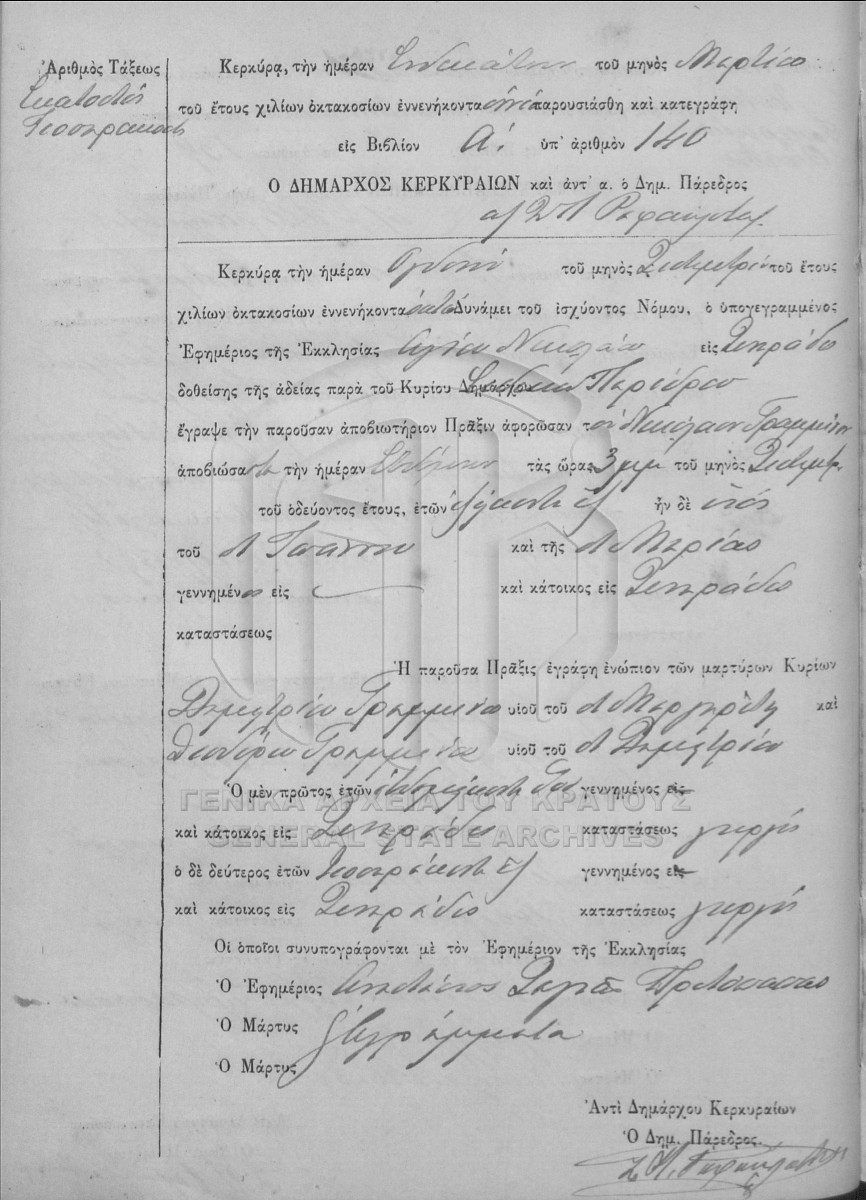 Ἀριθμὸς Τάξεως
Ἑκατοστὸς
Τεσσαρακοστὸς
Κερκύρᾳ, τὴν ἡμέραν ἑνδεκάτην τοῦ μηνὸς Μαρτίου
τοῦ ἔτους χιλίων ὀκτακοσίων ἐννενήκοντα ἐννέα παρουσιάσθη καὶ κατεγράφη
εἰς Βιβλίον Α! ὑπ' ἀριθμὸν 140
Ὁ ΔΗΜΑΡΧΟΣ ΚΕΡΚΥΡΑΙΩΝ καὶ ἀντ' α. ὁ Δημ. Πάρεδρος
Κερκύρᾳ τὴν ἡμέραν ὀγδόην τοῦ μηνὸς Σεπτεμβρίου τοῦ ἔτους
χιλίων ὀκτακοσίων ἐννενήκοντα ὀκτὼ Δυνάμει τοῦ ἰσχύοντος Νόμου, ὁ ὑπογεγραμμένος
Ἐφημέριος τῆς Ἐκκλησίας Ἁγίου Νικολάου εἰς Σιναράδες
δοθείσης τῆς ἀδείας παρὰ τοῦ Κυρίου Δημάρχου Παρέδρου
ἔγραψε τὴν παροῦσαν ἀποβιωτήριον Πρᾶξιν ἀφορῶσαν τὸν Νικόλαον Γραμμένον
ἀποβιώσαντα τὴν ἡμέραν ἑβδόμην τὰς ὥρας 3 μμ τοῦ μηνὸς Σεπτεμβρ.
τοῦ ὁδεύοντος ἔτους, ἐτῶν ἑξήκοντα ἓξ ἦν δὲ υἱὸς
τοῦ Ἰωάννου καὶ τῆς Μαρίας
γεννημένος εἰς καὶ κάτοικος εἰς Σιναράδες
καταστάσεως
Ἡ παροῦσα Πρᾶξις ἐγράφη ἐνώπιον τῶν μαρτύρων Κυρίων
Δημητρίου Γραμμένου υἱοῦ τοῦ Μαργαρίτη καὶ
Γραμμένου υἱοῦ τοῦ Δημητρίου
Ὁ μὲν πρῶτος ἐτῶν γεννημένος εἰς
ΓΕΝΙΚΑ ΑΡΧΕΙΑ ΤΟΥ ΚΡΑΤΟΥΣ
καὶ κάτοικος εἰς Σιναράδες καταστάσεως γεωργὸς
GENERAL STATE ARCHIVES
ὁ δὲ δεύτερος ἐτῶν τεσσαράκοντα ἓξ γεννημένος εἰς
καὶ κάτοικος εἰς Σιναράδες καταστάσεως γεωργὸς
Οἱ ὁποῖοι συνυπογράφονται μὲ τὸν Ἐφημέριον τῆς Ἐκκλησίας
Ὁ Ἐφημέριος Πρωτόπαπας
Ὁ Μάρτυς ἀγράμματοι
Ὁ Μάρτυς
Ἀντὶ Δημάρχου Κερκυραίων
Ὁ Δημ. Πάρεδρος.